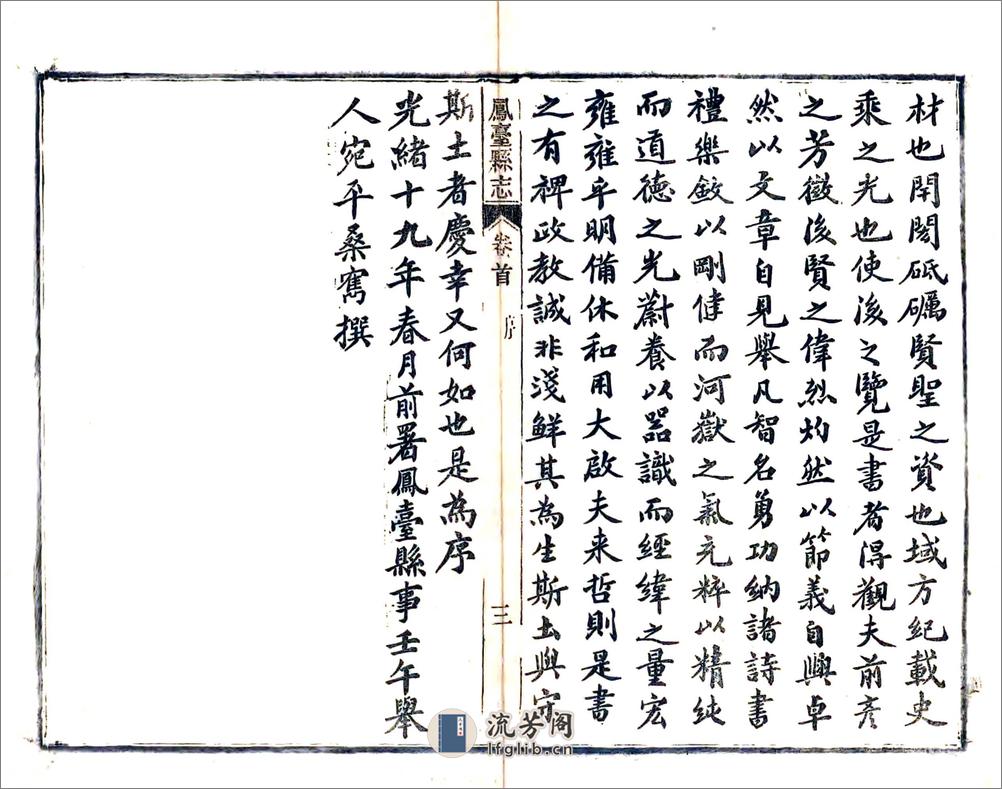 材也閈閎砥礪賢聖之資也域方紀載史
乘之光也使後之覽是書者得觀夫前彥
之芳徽後賢之偉烈灼然以節義自興卓
然以文章自見舉凡智名勇功納諸詩書
禮樂斂以剛健而河嶽之氣充粹以精純
而道德之光蔚養以器識而經緯之量宏
雍雍乎明備休和用大啟夫来哲則是書
之有裨政教誠非淺鮮其為生斯土與守
鳳臺縣志
卷首
序
三
斯土者慶幸又何如也是為序
光緒十九年春月前署鳳臺縣事壬午舉
人宛平桑寯撰
流芳阁
lfglib.cn